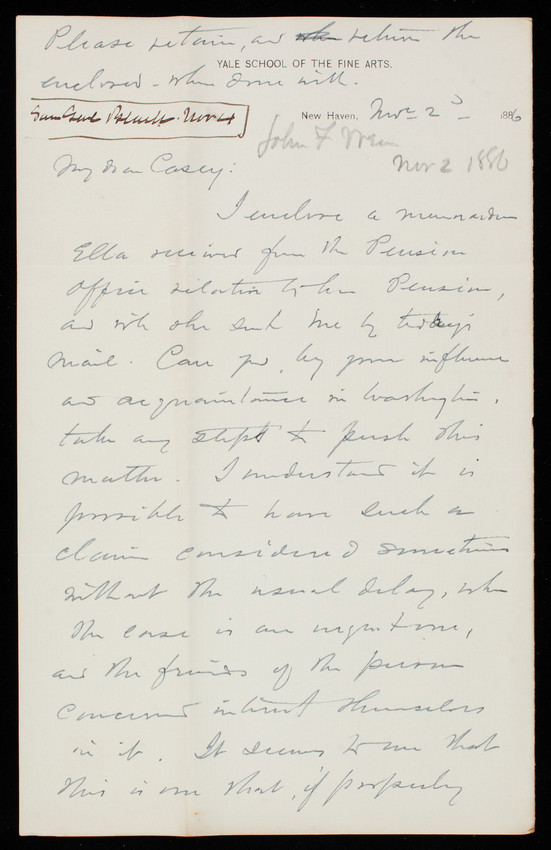 Please retain, and when return the
YALE SCHOOL OF THE FINE ARTS.
enclosed - when done with.
New Haven, Nov 2d 1886
John F Weir
Nov 2 1886
My dear Casey:
I enclose a memorandum
Ella received from the Pension
Office relative to her Pension,
and wh she sent me by today's
mail. Can you, by your influence
and acquaintance in Washington,
take any steps to push this
matter. I understand it is
possible to have such a
claim considered sometimes
without the usual delay, when
the case is an urgent one,
and the friends of the person
concerned interest themselves
in it. It seems to me that
this is one that, if properly